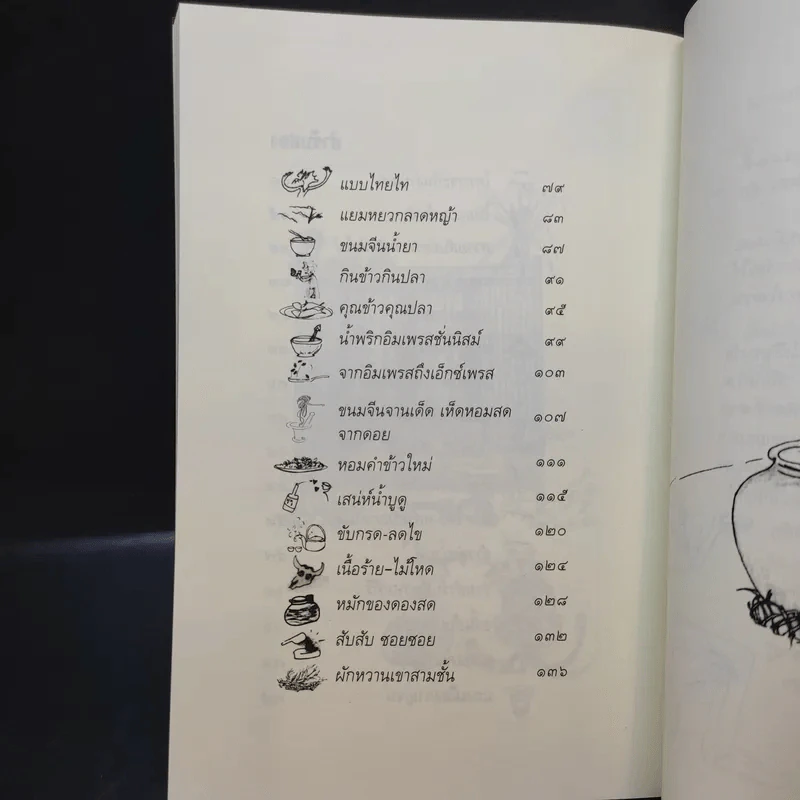 แบบไทยไท ๗๙
แยมหยวกลาดหญ้า ๘๓
ขนมจีนน้ำยา ๘๗
กินข้าวกินปลา ๙๑
คุณข้าวคุณปลา ๙๕
น้ำพริกอิมเพรสชั่นนิสม์ ๙๙
จากอิมเพรสถึงเอ็กซ์เพรส ๑๐๓
ขนมจีนจานเด็ด เห็ดหอมสด ๑๐๗
จากดอย
หอมคำข้าวใหม่ ๑๑๑
เสน่ห์น้ำบูดู ๑๑๕
ขับกรด-ลดไข ๑๒๐
เนื้อร้าย-ไม้โหด ๑๒๔
หมักของดองสด ๑๒๘
สับสับ ซอยซอย ๑๓๒
ผักหวานเขาสามชั้น ๑๓๖